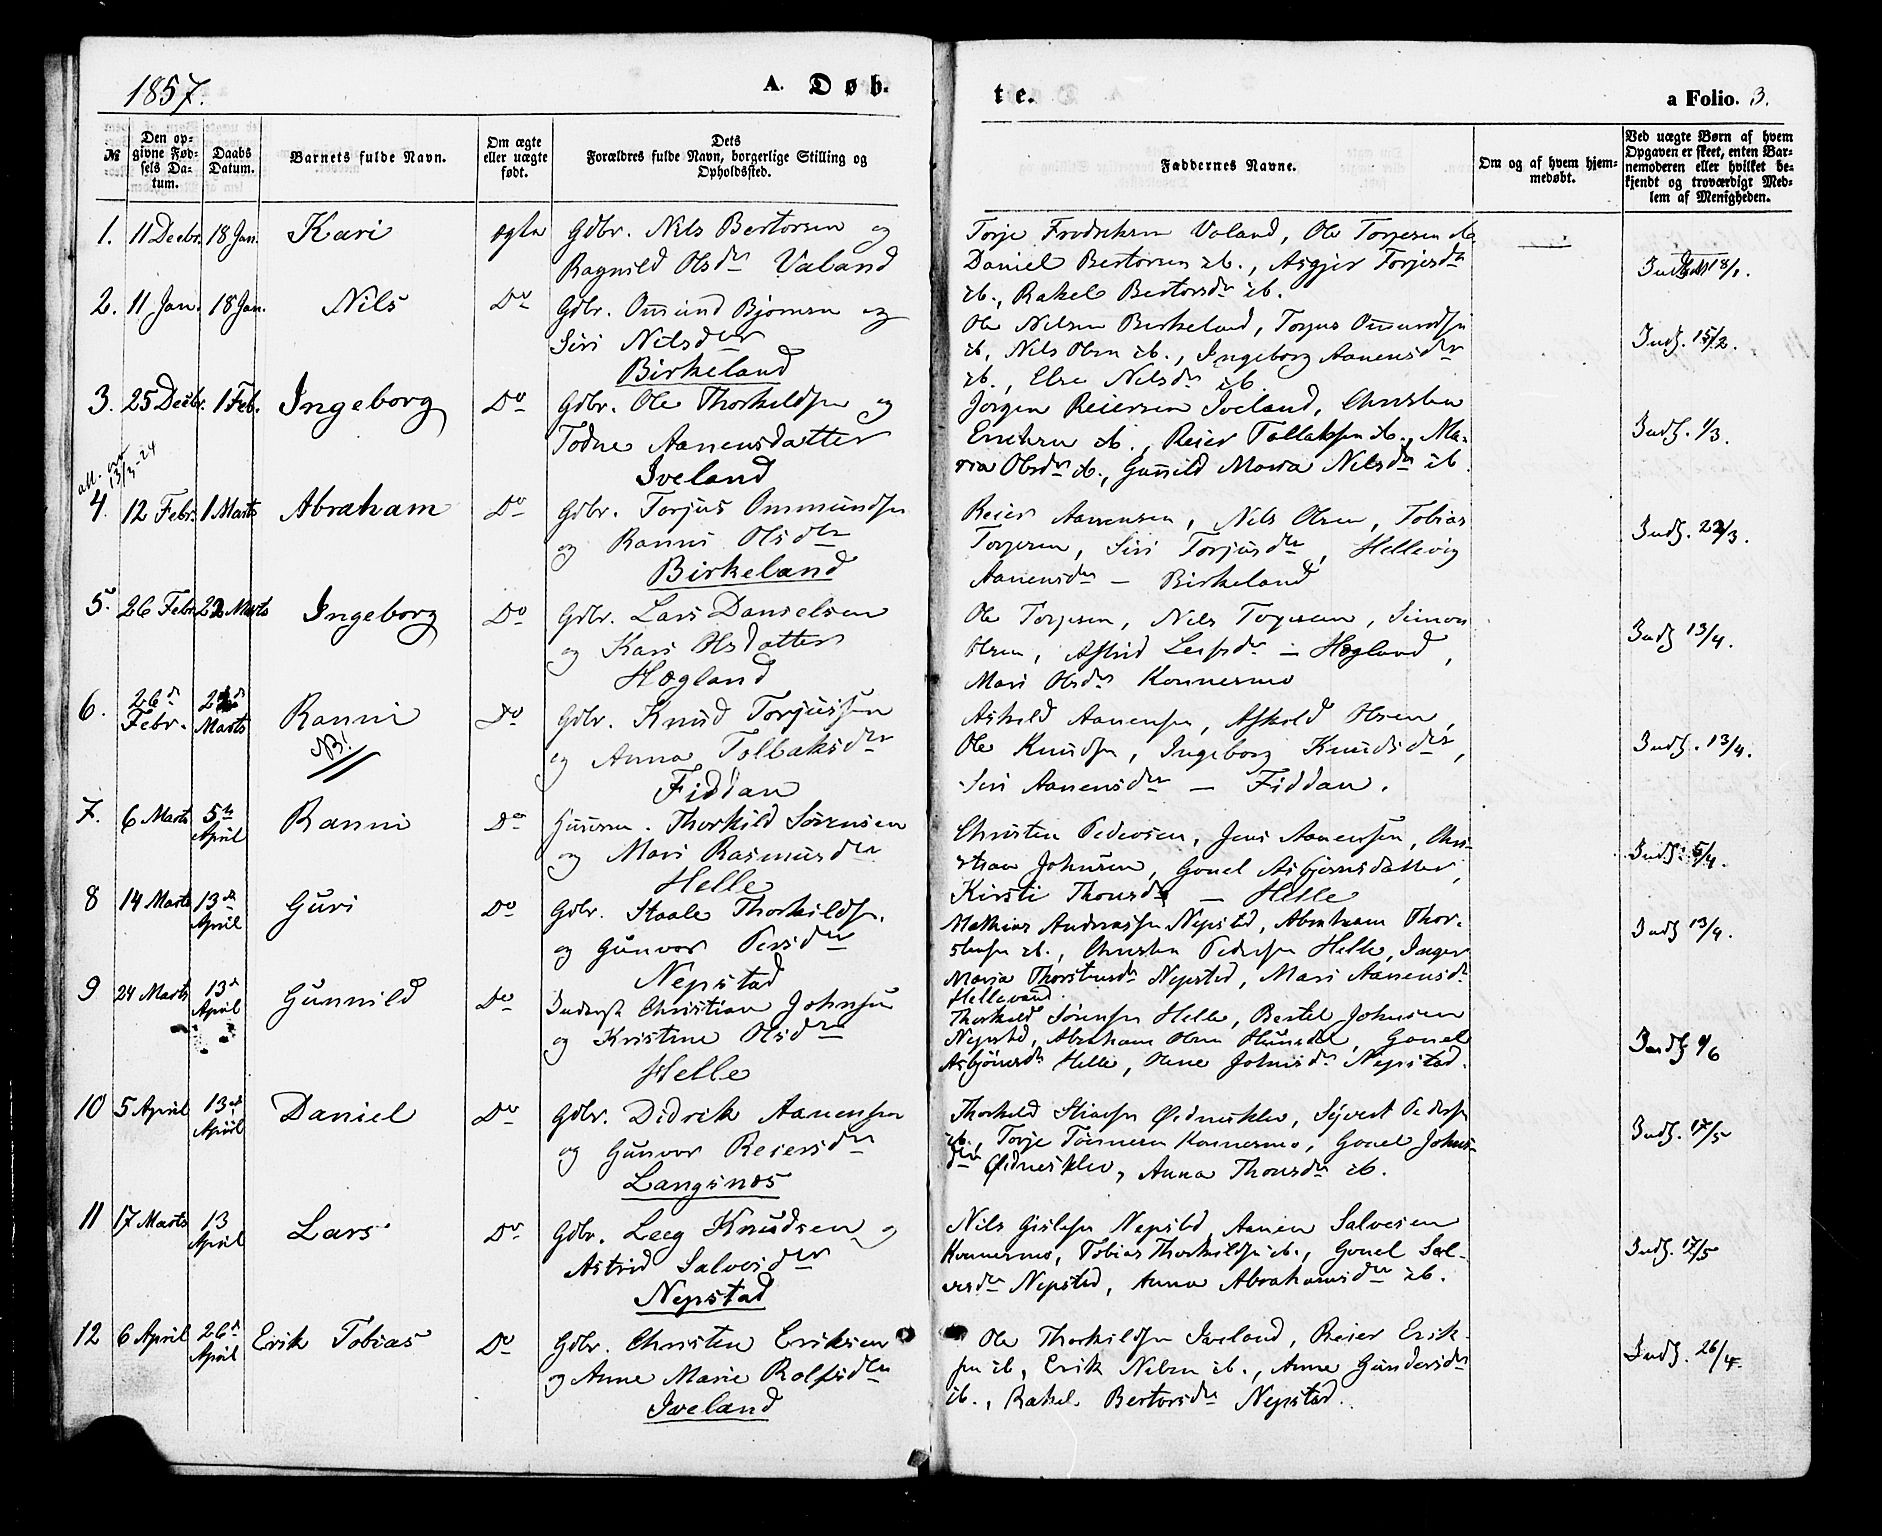 1857.
A. Døb-
te.
a Folio. 3.
№
Den op-
givne Fød-
sels Da-
tum.
Daabs
Datum.
Barnets fulde Navn.
Om ægte
eller uægte
født.
Dets
Forældres fulde Navn, borgerlige Stilling og
Opholdssted.
Faddernes Navne.
Om og af hvem hjem-
medøbt.
Ved uægte Børn af hvem
Opgaven er skeet, enten Bar-
nemoderen eller hvilket be-
kjendt og troværdigt Med-
lem af Menigheden.
1. 11 Decbr. 18 Jan. Kari ægte
Gdbr. Nils Bertorsen og
Ragnild Olsdr Valand
Torje Fredriksen Valand, Ole Torjesen ib.
Daniel Bertorsen ib., Asgjer Torjesdr
ib., Rakel Bertorsdr ib.
18/1.
2. 11 Jan. 18 Jan. Nils Do
Gdbr. Omund Bjornsen og
Siri Nilsdtr
Birkeland
Ole Nilsen Birkeland, Torjus Omundsen
ib, Nils Olsen ib., Ingeborg Aanensdtr
ib., Else Nilsdr ib.
Indf. 15/2.
3. 25 Decbr. 1 Feb. Ingeborg Do
Gdbr. Ole Thorkildsen og
Todne Aanensdatter
Iveland
Jørgen Reiersen Iveland, Christen
Ericksen ib., Reier Tallaksen ib., Ma-
ria Olsdr ib., Gunild Maria Nilsdr ib.
Indf. 1/3.
att. av
13/3-24
4. 12 Febr. 1 Marts Abraham Do
Gdbr. Torjus Ommundsen
og Ranni Olsdtr
Birkeland
Reier Aanensen, Nils Olsen, Tobias
Torjesen, Siri Torjusdtr, Hellevig
Aanensdr — Birkeland
Indf. 22/3.
5. 26 Febr. 22 Marts Ingeborg Do
Gdbr. Lars Danielsen
og Kari Olsdatter
Hægland
Ole Torjesen, Nils Torjesen, Simon
Olsen, Astrid — Hægland,
Mari Olsdr Konnesmo
Indf. 13/4.
6. 26d
Febr. 22d
Marts Ranni Do
NB!
Gdbr. Knud Torjussen
og Anna Tollaksdtr
Fiddan
Askild Aanensen, Askild Olsen,
Ole Knudsen, Ingeborg Knudsdtr,
Siri Aanensdtr — Fiddan.
Indf. 13/4.
7. 6 Marts 5te
April Ranni Do
Husmn. Thorkild Sørensen
og Mari Rasmusdtr
Helle
Christen Pedersen, Jens Aanensen, Chri-
stian Johnsen, Gonel Asbjørnsdatter,
Kirsti Thorsdr — Helle
Indf. 5/4.
8 14 Marts 13de
April Guri Do
Gdbr. Staale Thorkildsen.
og Gunvor Persdtr
Nepstad
Mathias Andreassen Nepstad, Abraham Thor-
stensen ib., Christen Pedersen Helle, Inger
Maria Thorstensdr Nepstad, Mari Aanensdr
Hellevand.
Indf 13/4.
9 24 Marts 13d
April Gunnild Do
Inderst Christian Johnsen
og Kristine Olsdtr
Helle
Thorkild Sørensen Helle, Bertel Johnsen
Nepstad, Abraham Olsen, Gonel
Asbjönsdr Helle, Johnsdr Nepstad.
Indf 1/6
10 5 April 13de
April Daniel Do
Gdbr. Didrik Aanensen
og Gunvor Reiersdtr
Langsnæs
Thorkild Øidnesklev, Syvert Pedersen
ib., Torje Tönnesen Konnesmo, Gonel Johns-
dtr Øidnesklev, Anna Thorsdr ib.
Indf. 17/5
11 17 Marts 13
April Lars Do
Gdbr. Leeg Knudsen og
Astrid Salvesdtr
Nepstad
Nils Gislesen Nepstad, Aanen Salvesen
Konnesmo, Tobias Thorkildsen ib., Gonel Sal-
vesdr Nepstad, Anna Abrahamsdtr ib.
Indf. 17/5
12 6 April 26d
April Erik Tobias Do
Gdbr. Christen Eriksen
og Anne Marie Rolfsdtr
Iveland
Ole Thorkildsen Iveland, Reier Erik-
sen ib, Erik Nilsen ib., Anne Gundersdr
ib., Rakel Bertorsdr Nepstad.
Indf. 26/4.